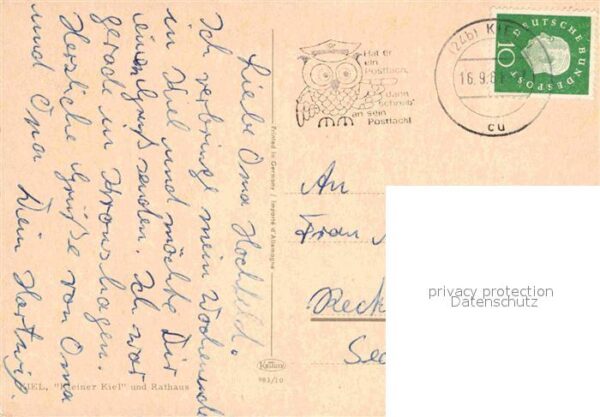 Liebe Oma Hochfeld.
Ich verbringe mein Wochenende
in Kiel und möchte Dir
einen Gruß senden. Ich war
gerade in Kronshagen.
Herzliche Grüße von Oma
und Opa Dein Hartwig.
KIEL, "Kleiner Kiel" und Rathaus
Printed in Germany / Importé d'Allemagne
983/10
Hat er
ein
Postfach,
dann
schreib'
an sein
Postfach!
(24b) KIEL
16.9.61
cu
DEUTSCHE BUNDESPOST
10
An
Frau
Seck
See
privacy protection
Datenschutz